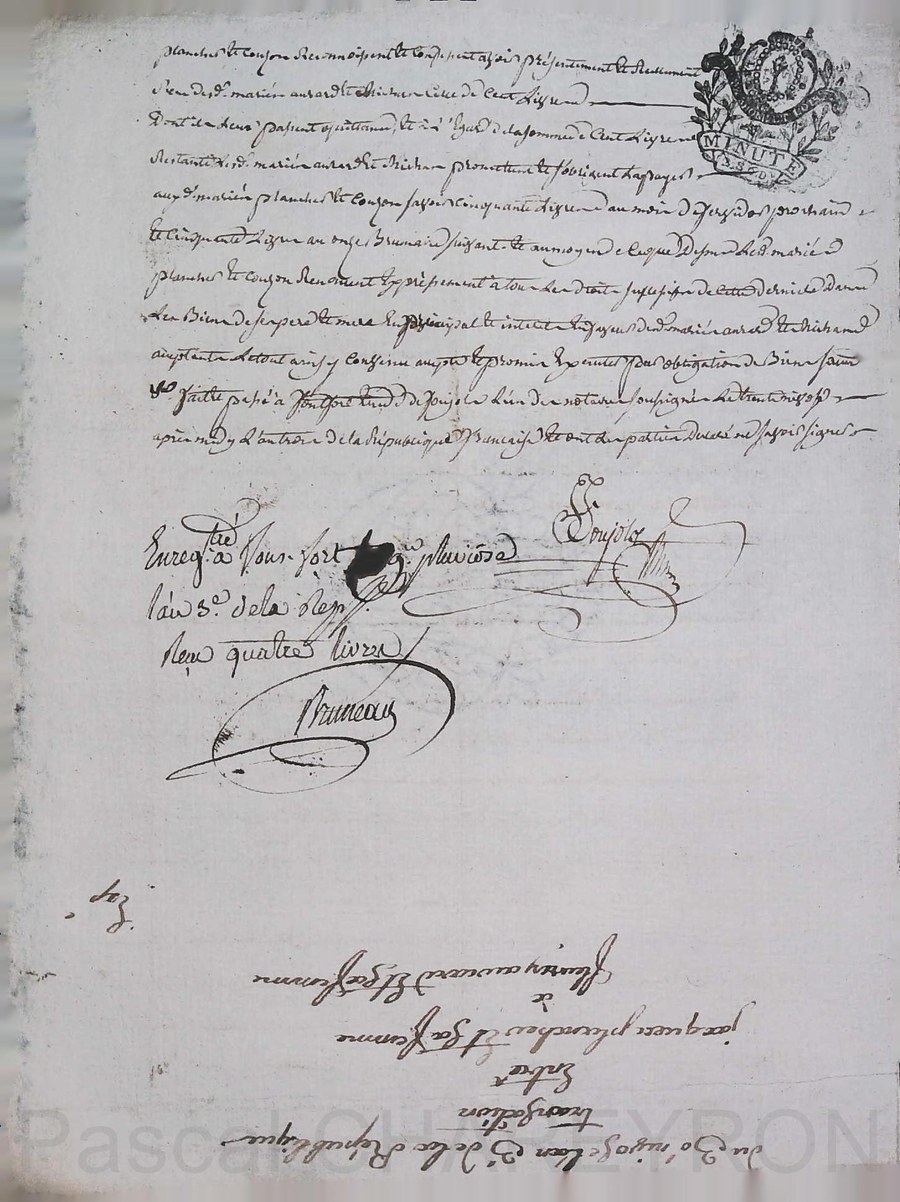 planches et couzon Reconnoissent et confessent avoir présentement et Réellement
Reçu desd. mariés auvard et Richan celle de Cent Livres
Dont il Leur passent quittance, et à l'égard de la somme de Cent Livres
Restante Lesd. mariés auvard et Richan promettent et s'obligent La payer
auxd. mariés planches et couzon savoir cinquante Livres au mois de prochain
et cinquante Livres au onze Brumaire suivant et au moyen de ce que Dessus Lesd. mariés
planches et couzon Renoncent Expressement à tous Les droits de cette derniere dans
Les Biens de ses pere et mere En principal et interets En faveur desd. mariés auvard et Richand
acceptants Et tout ainsi convenu accepté et promis Executer par obligation de Biens
fait et passé à de Poujols L'un des notaires soussignés Le trente nivose
après midy L'an trois de la République française et ont Les parties Déclaré ne savoir signer
Poujols
Enreg.tré à pluviose
l'an 3.e de la Rep.
Reçu quatre livres
Bruneau
MINUTE
Exp.e
du 30 nivose l'an 3e de la République
transaction
Entre
jacques planches Et sa femme
à
fleury auvard Et sa femme
Pascal CHAPEYRON